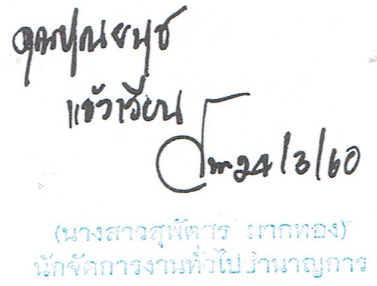 คุณปุณยนุช
แจ้งเวียน
24/3/60
(นางสาวสุพัตาร มากทอง)
นักจัดการงานทั่วไปชำนาญการ